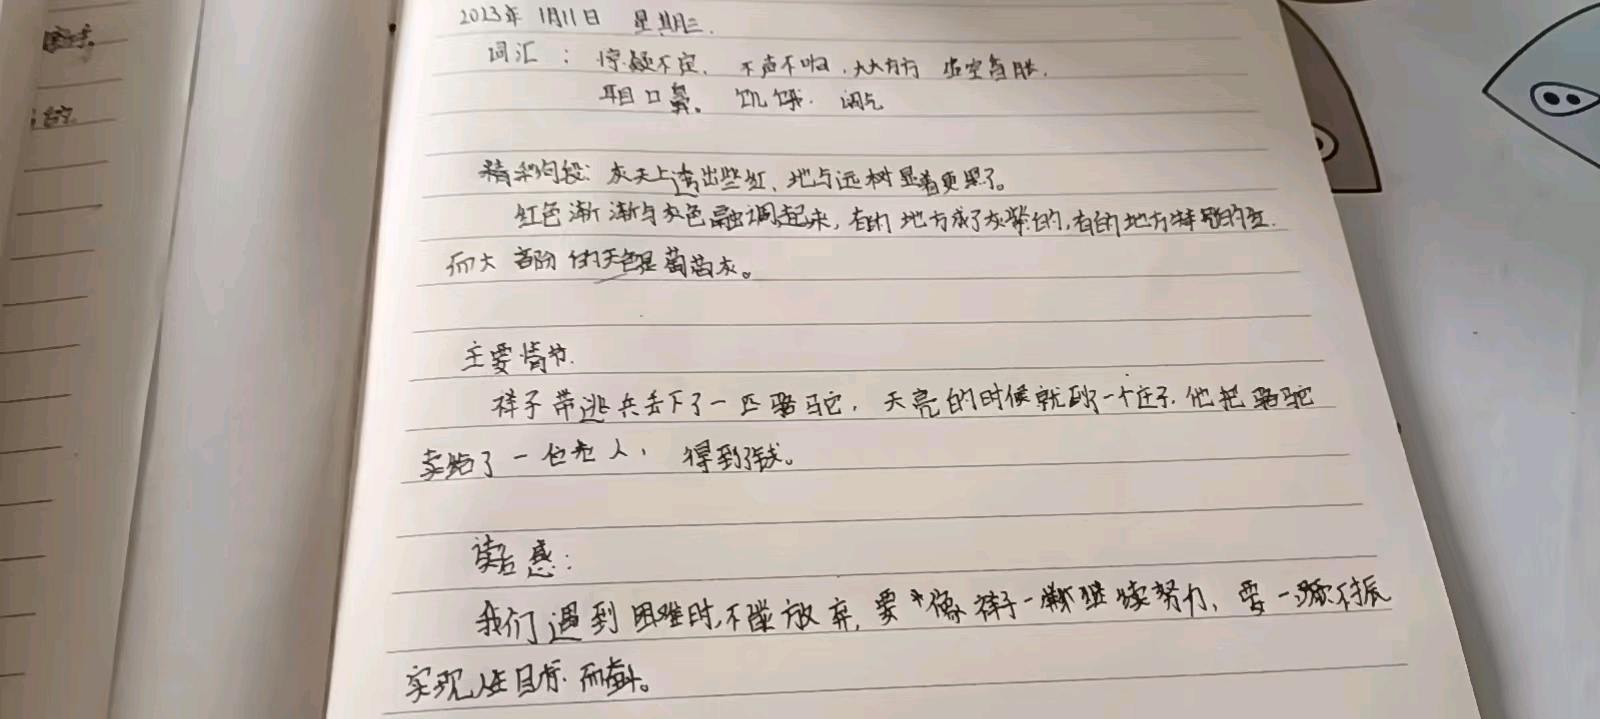 2023年 1月11日 星期三.
词汇： 惊疑不定. 不声不响. 大大方方
耳目口鼻. 饥饿.
精彩句段: 灰天上透出些红、地与远树显着更黑了。
红色渐渐与灰色融调起来，有的地方成了灰紫的,有的地方特别的红.
而大部分的天色是葡萄灰。
主要情节.
祥子带逃兵丢下了一匹骆驼. 天亮的时候就到了一个庄子. 他把骆驼
卖给了一位老人, 得到了钱。
读后感:
我们遇到困难时,不能放弃,要像祥子一样继续努力,要一蹶不振
实现人生目标而奋斗。